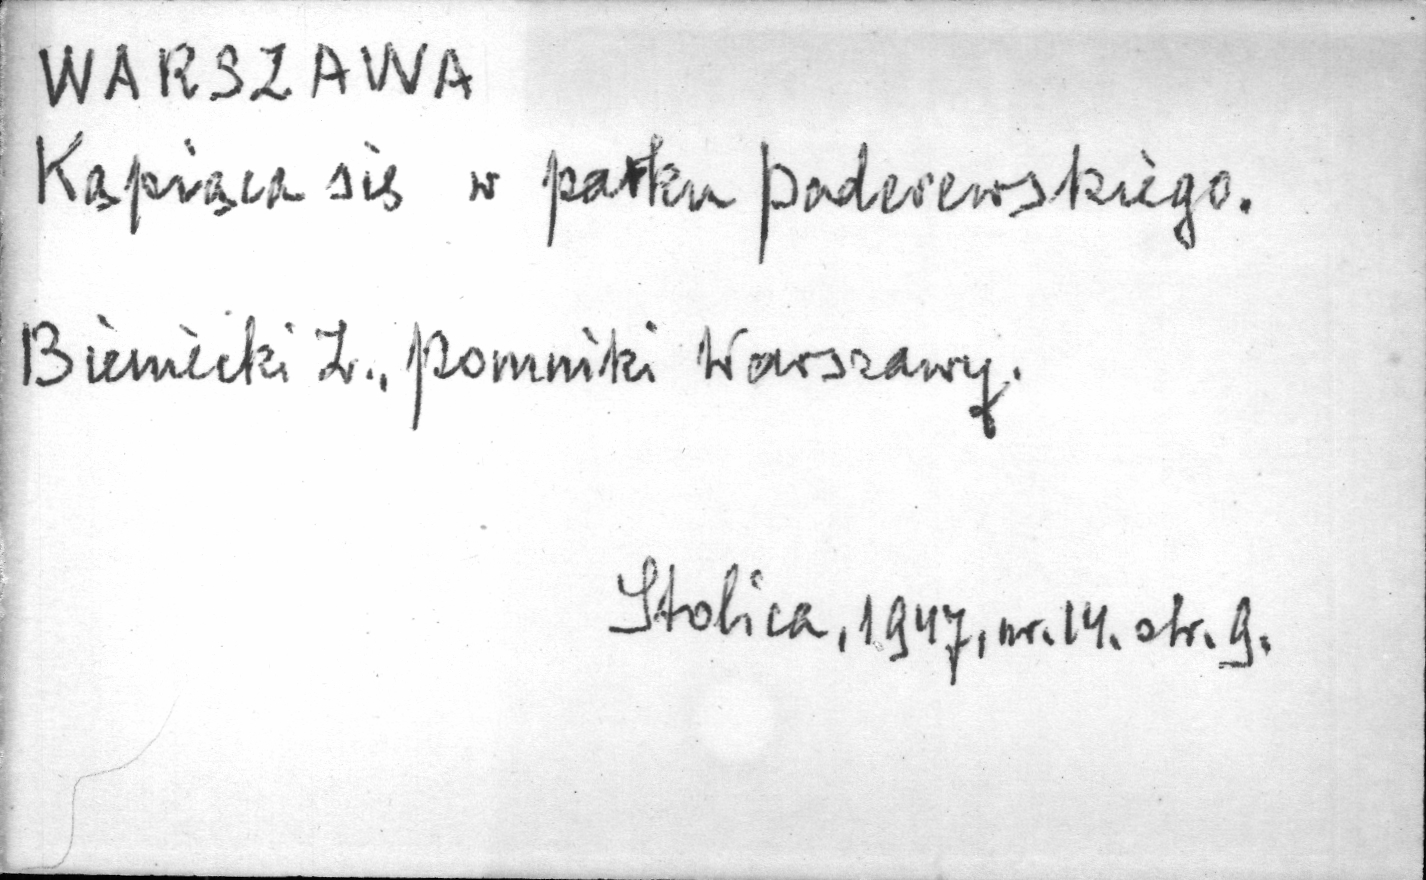 WARSZAWA
Kąpiąca się w parku Paderewskiego.
Bieniecki Z., Pomniki Warszawy.
Stolica, 1947, nr. 14. str. 9.